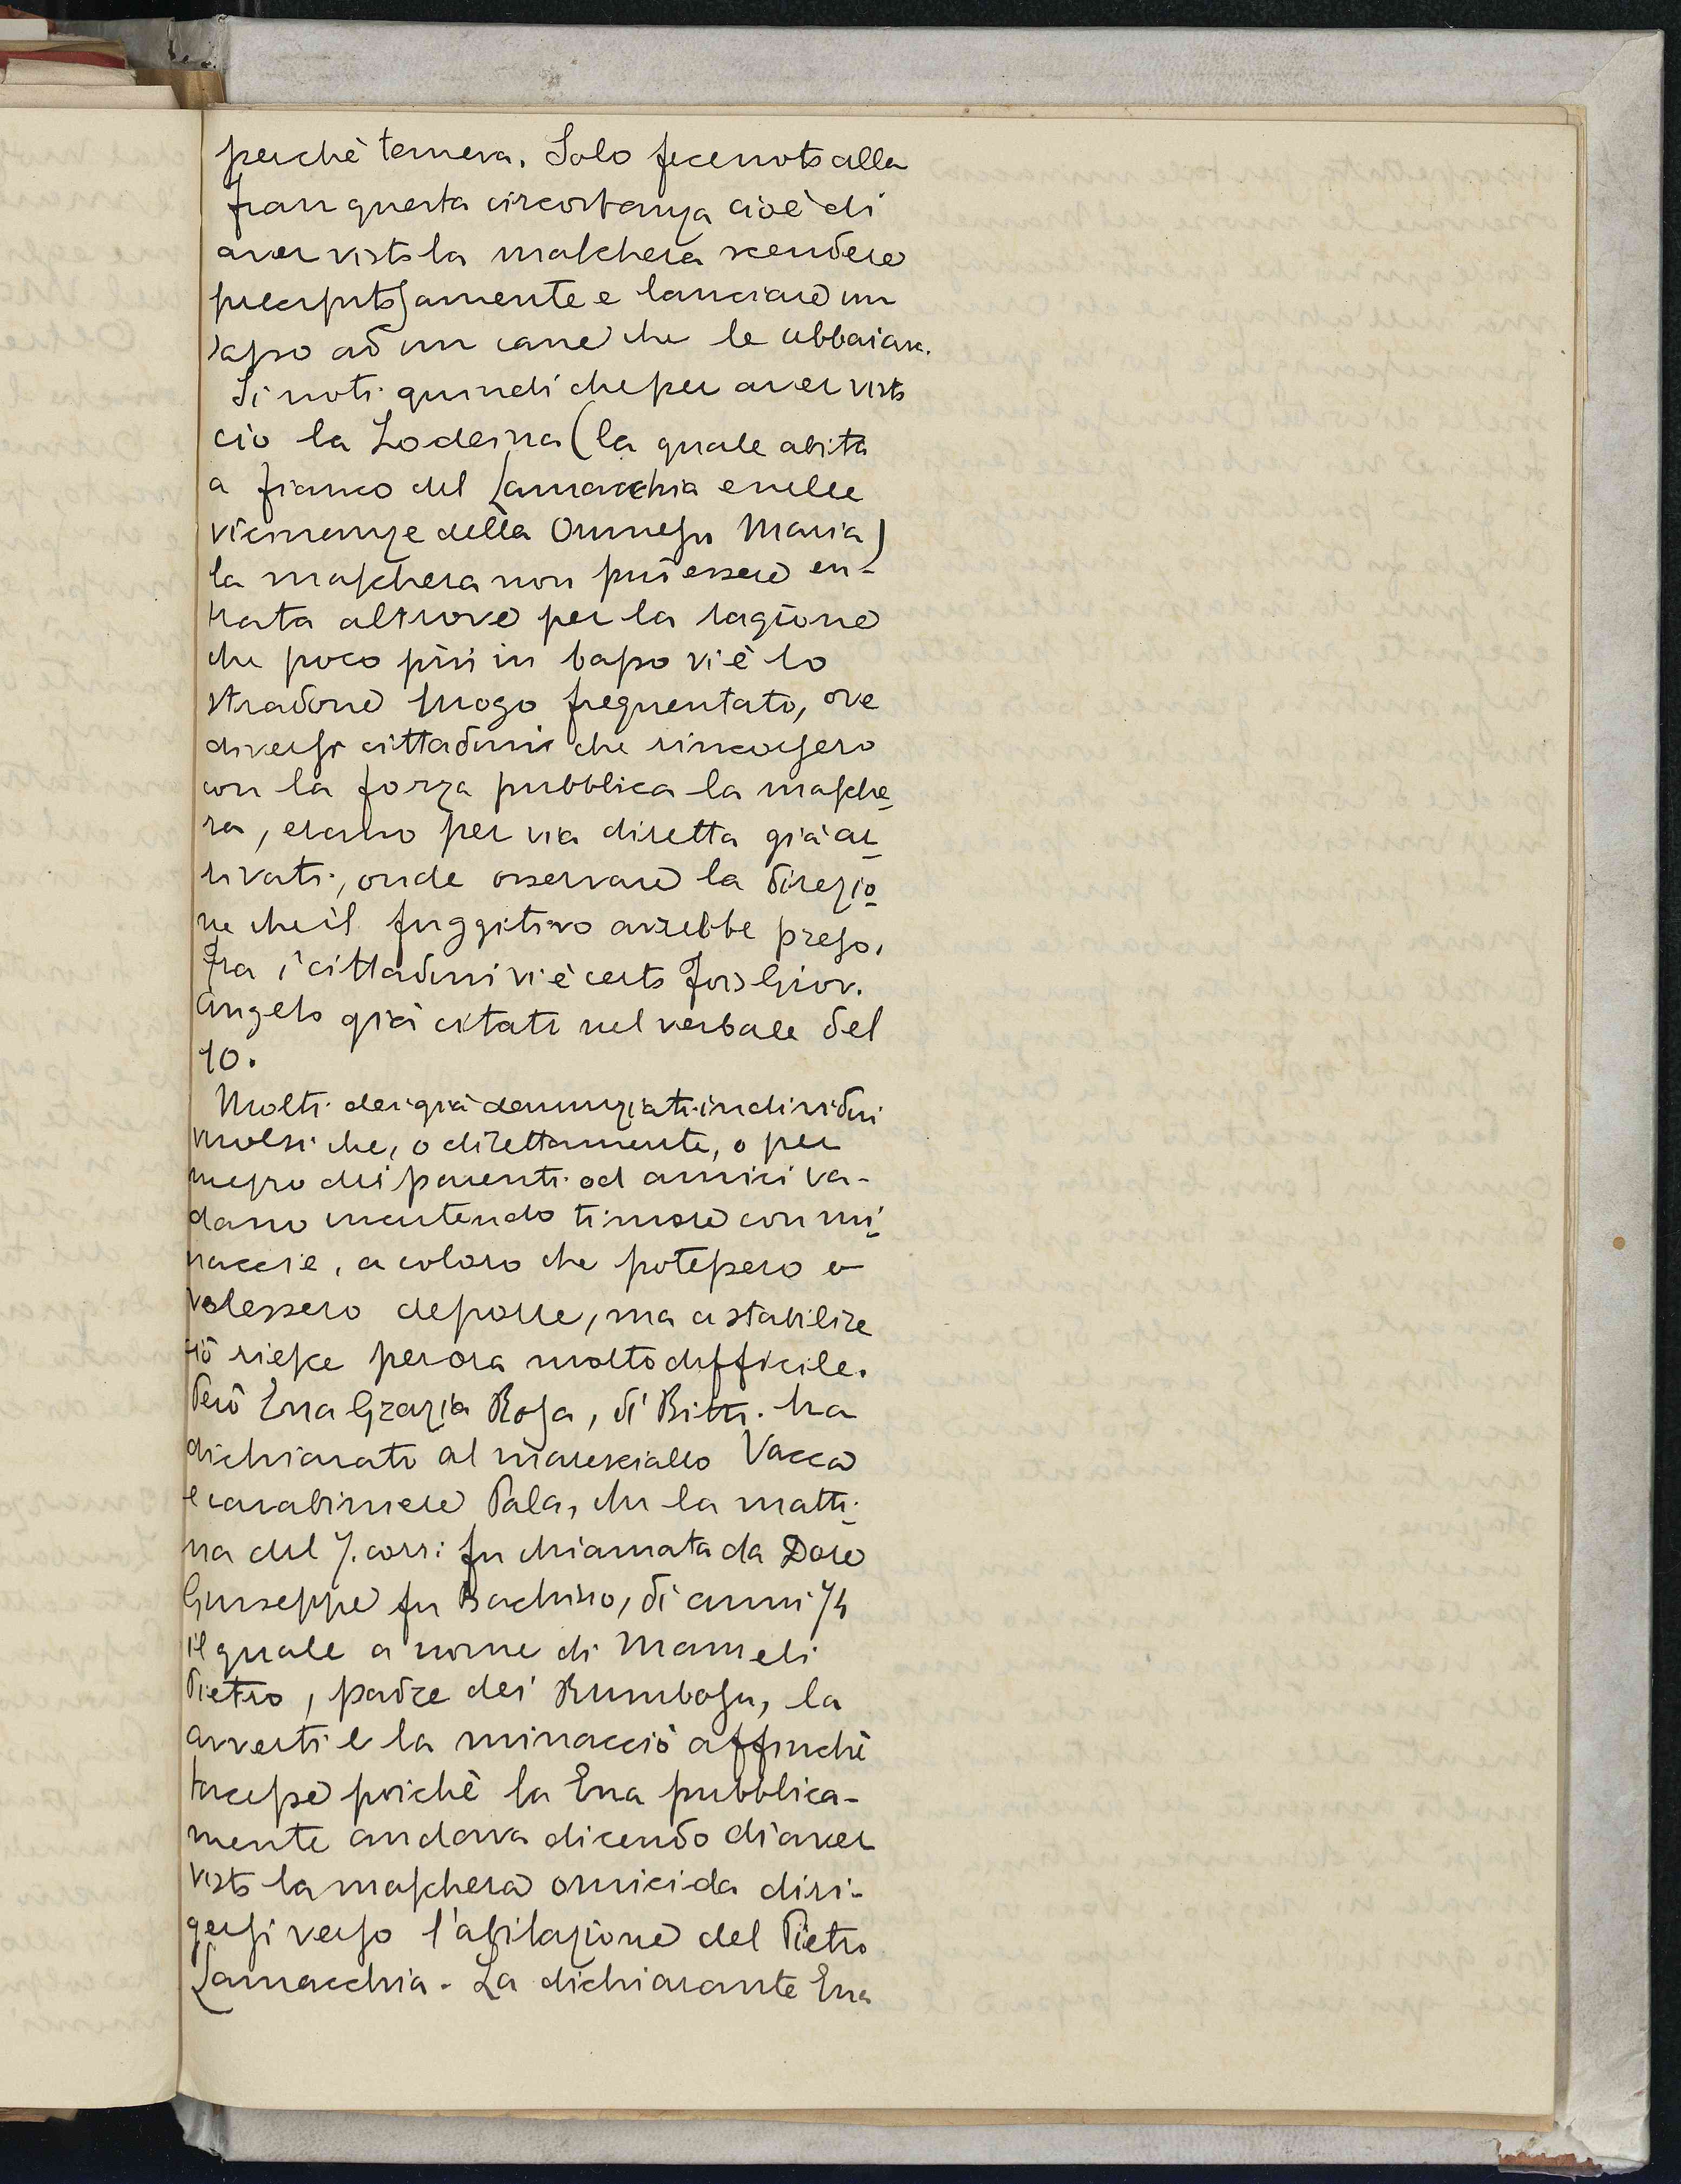 perchè temeva. Solo fece noto alla
Frau questa circostanza cioè di
aver visto la maschera scendere
precipitosamente e lanciare un
sasso ad un cane che le abbaiava.
Si noti quindi che per aver visto
ciò la Lodeina (la quale abita
a fianco del Lamacchia e nelle
vicinanze della Ommesu Maria)
la maschera non può essere en-
trata altrove per la ragione
che poco più in basso vi è lo
stradone luogo frequentato, ove
diversi cittadini che rincorsero
con la forza pubblica la masche
ra, erano per via diretta già ar
rivati, onde osservare la direzio
ne che il fuggitivo avrebbe preso.
Fra i cittadini vi è certo Fois Giov.
Angelo già citato nel verbale del
10.
Molti dei già denunziati individui
vuolsi che, o direttamente, o per
mezzo dei parenti od amici va-
dano incutendo timore con mi
naccie, a coloro che potessero o
volessero deporre, ma a stabilire
ciò riesce per ora molto difficile.
Però Ena Grazia Rosa, di Bitti. ha
dichiarato al maresciallo Vacca
e carabiniere Pala, che la matti
na del 7. corr: fu chiamata da Dore
Giuseppe fu Bachisio, di anni 74
il quale a nome di Mameli
Pietro, padre dei Rumbosu, la
avvertì e la minacciò affinchè
tacesse poichè la Ena pubblica-
mente andava dicendo di aver
visto la maschera omicida diri-
gersi verso l'abitazione del Pietro
Lamacchia. La dichiarante Ena